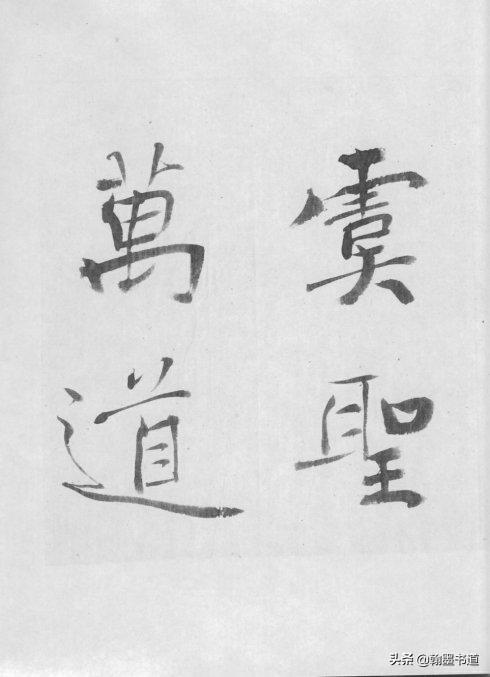 虞聖
萬道
头条 @翰墨书道